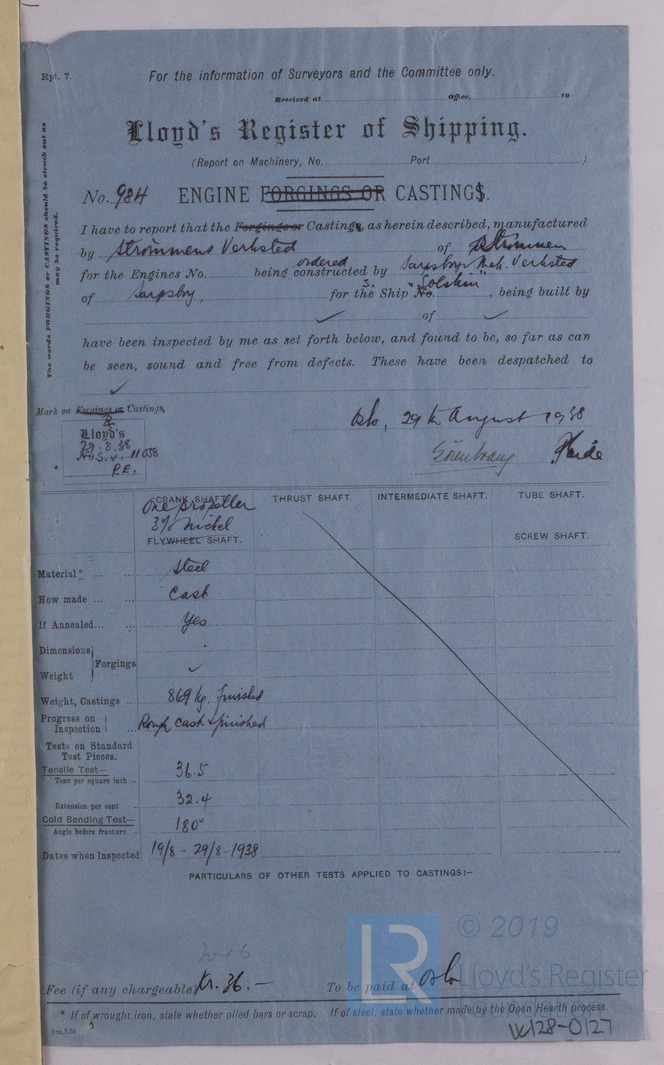 Rpt. 7.
For the information of Surveyors and the Committee only.
Received at Office, 19
Lloyd's Register of Shipping.
(Report on Machinery, No. Port )
No. 984 ENGINE FORGINGS OR CASTINGS.
The words FORGINGS or CASTINGS should be struck out as
may be required.
I have to report that the Forgings or Castings, as herein described, manufactured
by Strömmens Verksted of Strömmen
for the Engines No. being constructed by ordered Sarpsborg Mek. Verksted
of Sarpsborg, for the Ship No. S. "Solskin", being built by
of
have been inspected by me as set forth below, and found to be, so far as can
be seen, sound and free from defects. These have been despatched to
Mark on Forgings or Castings,
Oslo, 29th August 1938
Lloyd's
29.8.38
No S.V. 11058
P.E.
CRANK SHAFT. THRUST SHAFT. INTERMEDIATE SHAFT. TUBE SHAFT.
One propeller
3% Nickel
FLYWHEEL SHAFT. SCREW SHAFT.
Material* ... ... Steel
How made ... ... Cast
If Annealed... ... Yes
Dimensions
Forgings
Weight
Weight, Castings .. 869 kg. finished
Progress on
Inspection ... Rough cast & finished
Tests on Standard
Test Pieces.
Tensile Test—
Tons per square inch .. 36.5
Extension per cent 32.4
Cold Bending Test—
Angle before fracture .. 180°
Dates when Inspected 19/8 - 29/8-1938
PARTICULARS OF OTHER TESTS APPLIED TO CASTINGS:—
3046
© 2019
LR
Lloyd's Register
Fee (if any chargeable) Kr. 36.— To be paid at Oslo
* If of wrought iron, state whether piled bars or scrap. If of steel, state whether made by the Open Hearth process.
W128-0127